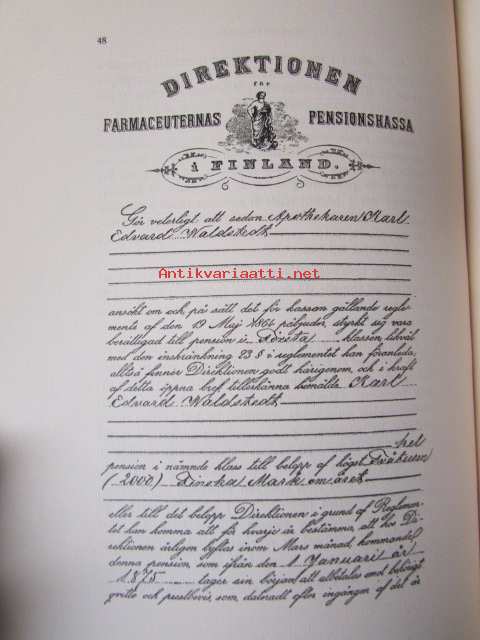 48
DIREKTIONEN
FÖR
FARMACEUTERNAS PENSIONSKASSA
i FINLAND.
Gör veterligt att sedan Apothekaren Karl
Edvard Waldstedt
Antikvariaatti.net
ansökt om och, på sätt det för kassan gällande regle-
mente af den 19 Maj 1864 påbjuder, styrkt sig vara
berättigad till pension i Första klassen likväl
med den inskränkning 23 § i reglementet kan föranleda,
alltså finner Direktionen godt härigenom, och i kraft
af detta öppna bref tillerkänna bemälde Karl
Edvard Waldstedt
hel
pension i nämnde klass till belopp af högst Tvåtusen
(2000) Finska Mark om året
eller till det belopp Direktionen i grund af Reglemen-
tet kan komma att för hvarje år bestämma, att hos Di-
rektionen årligen lyftas inom Mars månad, kommande
denna pension, som ifrån den 1 Januari år
1875 tager sin början att utbetalas mot behörigt
qvitto och prestbevis, som dateradt efter ingången af det år